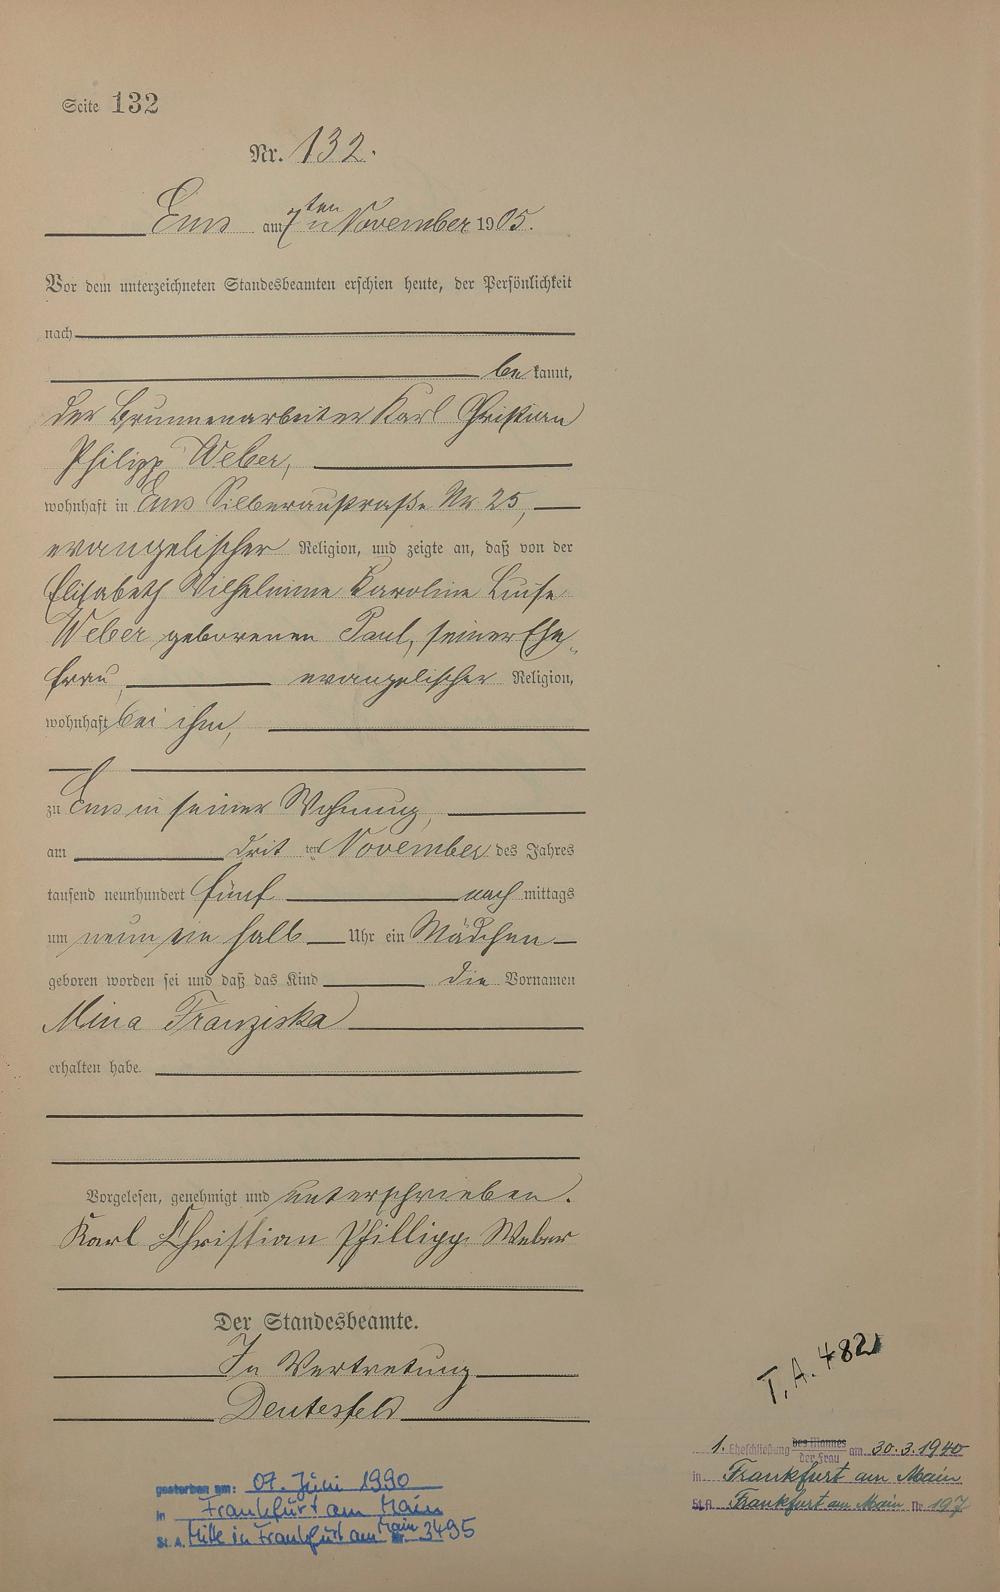 Seite 132
Nr. 132.
Ems am 7ten November 1905.
Vor dem unterzeichneten Standesbeamten erschien heute, der Persönlichkeit
nach
be kannt,
der Brunnenarbeiter Karl Christian
Philipp Weber,
wohnhaft in Ems Silberaustraße Nr 25,
evangelischer Religion, und zeigte an, daß von der
Elisabeth Wilhelmine Karoline Luise
Weber geborenen Paul, seiner Ehe-
frau, evangelischer Religion,
wohnhaft bei ihm,
zu Ems in seiner Wohnung,
am drit ten November des Jahres
tausend neunhundert fünf nach mittags
um neun ein halb Uhr ein Mädchen
geboren worden sei und daß das Kind die Vornamen
Mina Franziska
erhalten habe.
Vorgelesen, genehmigt und unterschrieben.
Karl Christian Phillipp Weber
Der Standesbeamte.
In Vertretung
T. A. 482
1. Eheschließung des Mannes der Frau am 30.3.1940
in Frankfurt am Main
St.A. Frankfurt am Main Nr. 197
gestorben am: 07. Juni 1990
in Frankfurt am Main
St. A. Mitte in Frankfurt am Main Nr. 3495